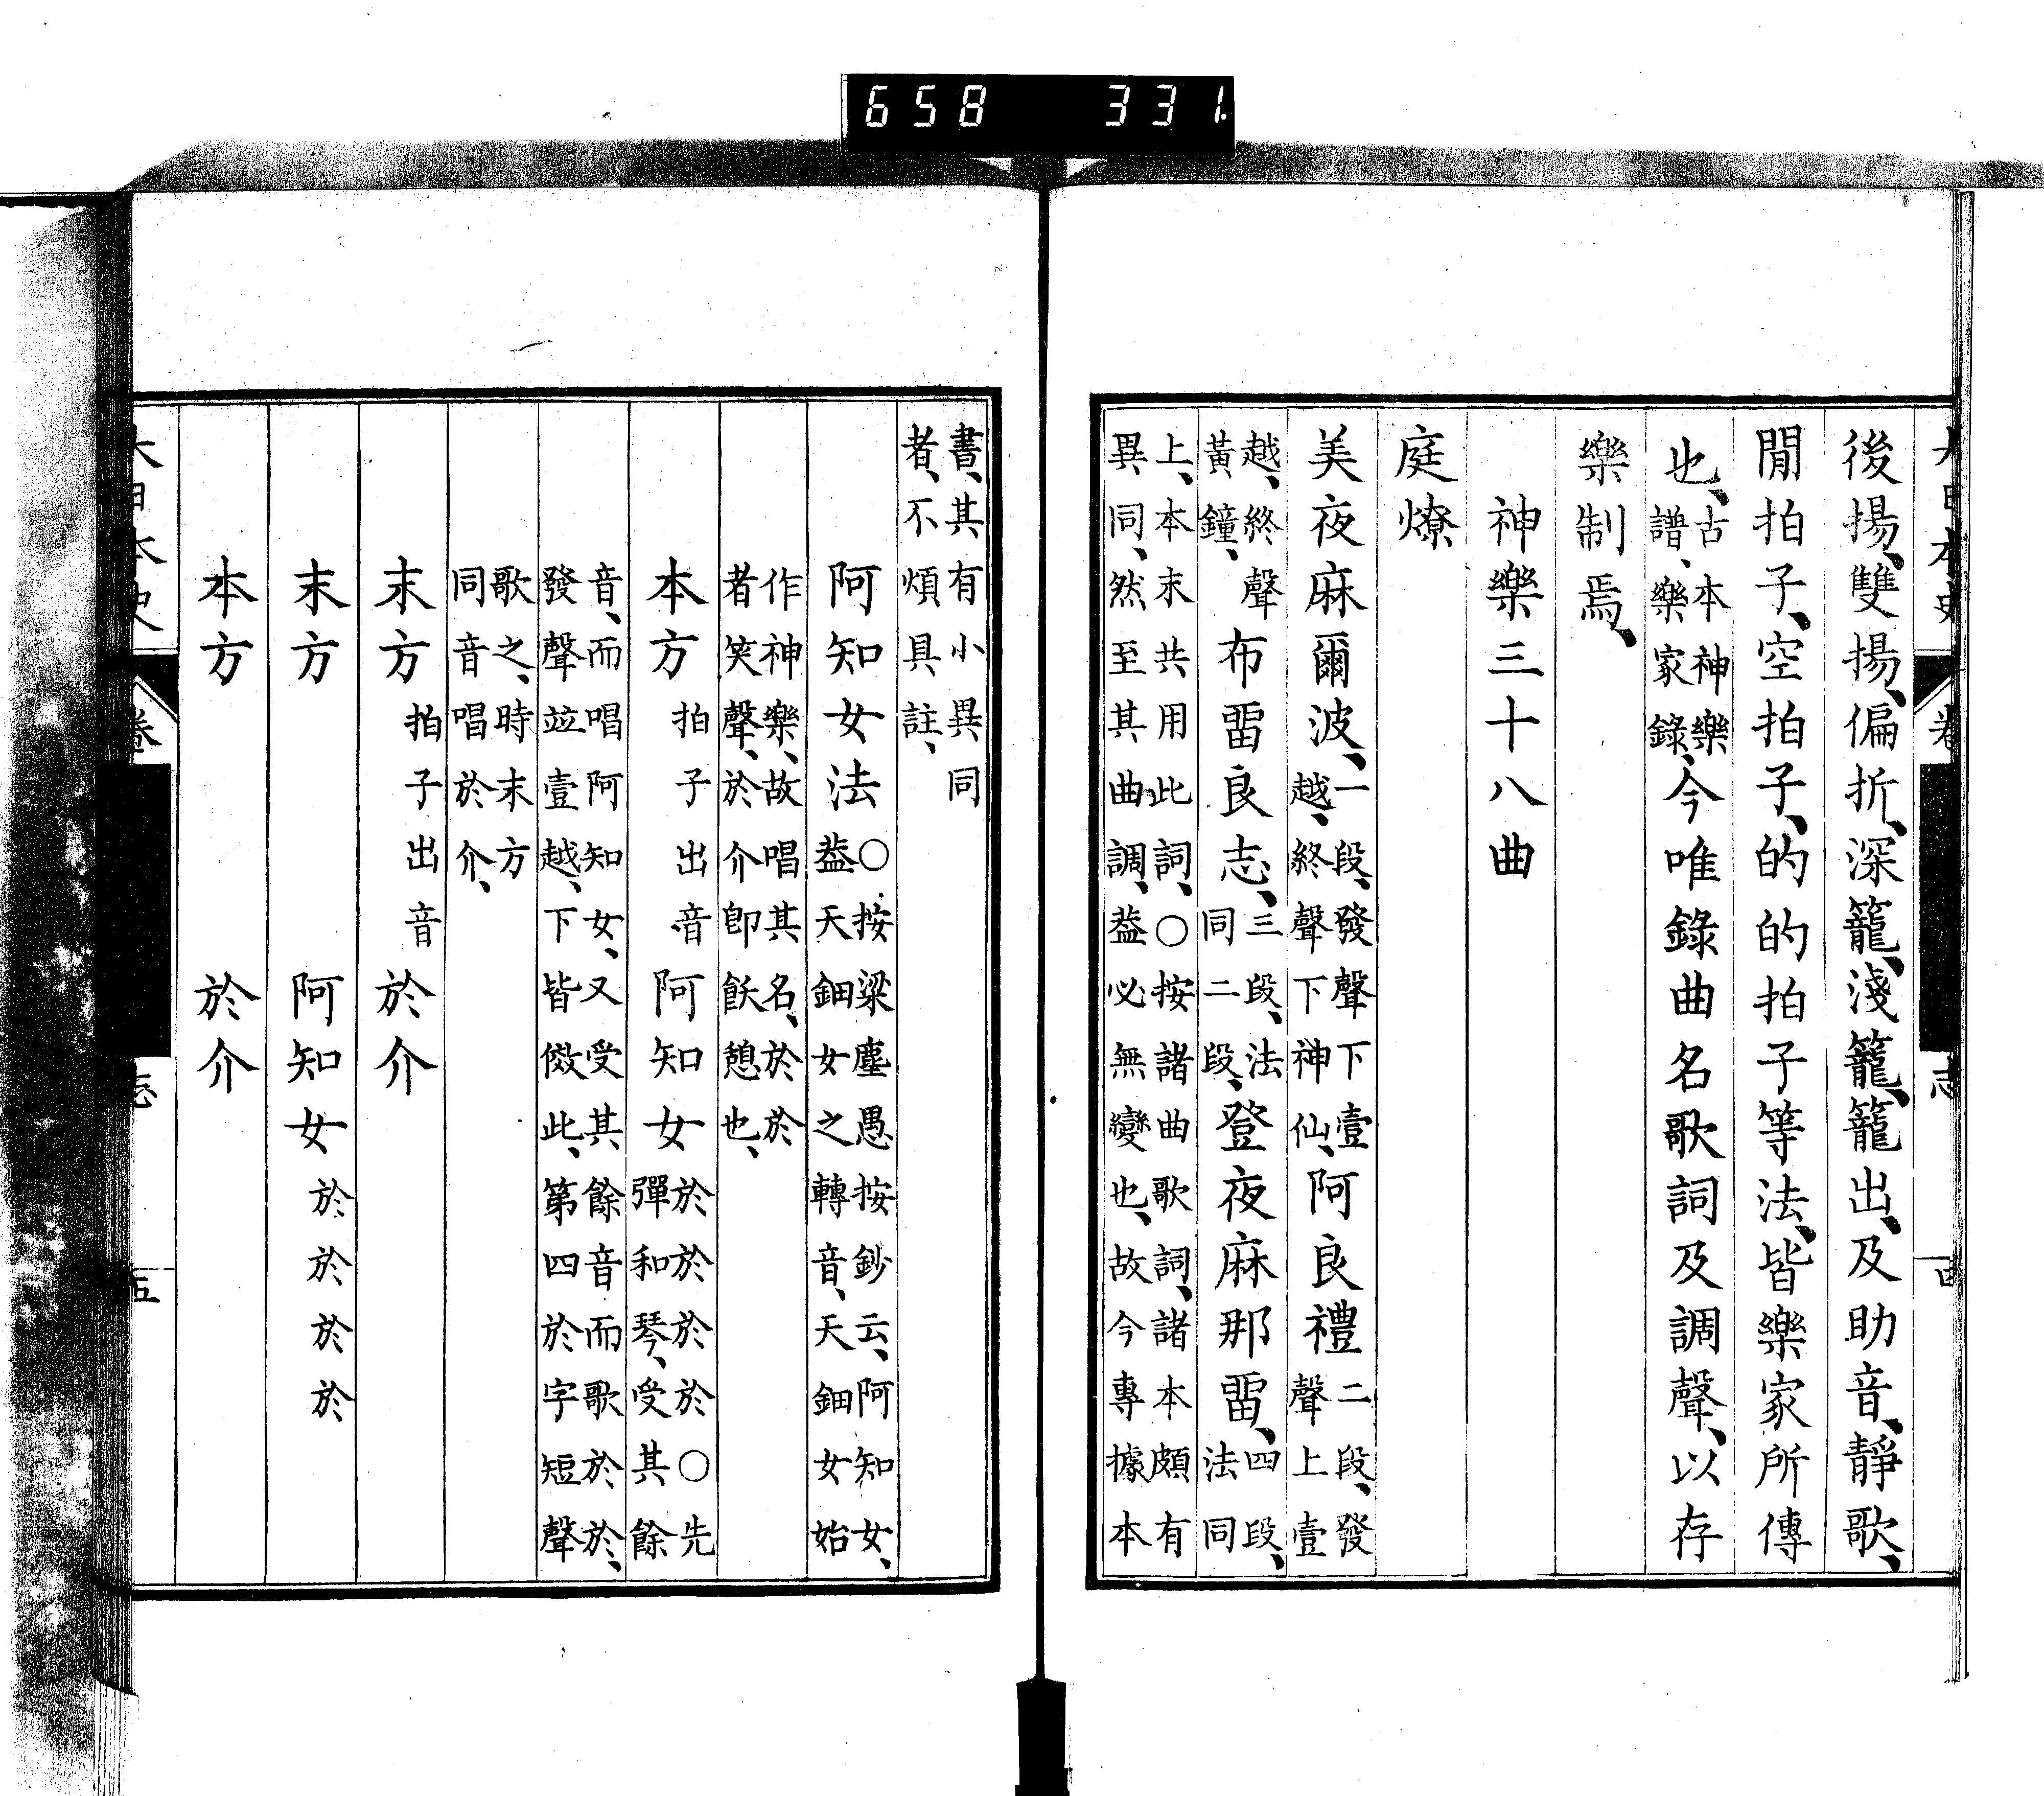 658 331.
後揚、雙揚、偏折、深籠、淺籠、籠出、及助音、靜歌、
閒拍子、空拍子、的的拍子等法、皆樂家所傳
也、古本神樂
譜、樂家錄、
今唯錄曲名歌詞及調聲、以存
樂制焉、
神樂三十八曲
庭燎
美夜麻爾波、
一段、發聲下壹
越、終聲下神仙、
阿良禮
二段、發
聲上壹
越、終聲
黃鐘、
布畱良志、
三段、法
同二段、
登夜麻那畱、
四段、
法同
上、本末共用此詞、○按諸曲歌詞、諸本頗有
異同、然至其曲調、蓋必無變也、故今專據本
書、其有小異同
者、不煩具註、
阿知女法
○按梁塵愚按鈔云、阿知女、
蓋天鈿女之轉音、天鈿女始
作神樂、故唱其名、於於
者笑聲、於介卽飫憩也、
本方
拍子出音
阿知女
於於於於○先
彈和琴、受其餘
音、而唱阿知女、又受其餘音而歌於於、
發聲竝壹越、下皆倣此、第四於字短聲
歌之、時末方
同音唱於介、
末方
拍子出音
於介
末方
阿知女
於於於於
本方
於介
大日本史
卷
志
五